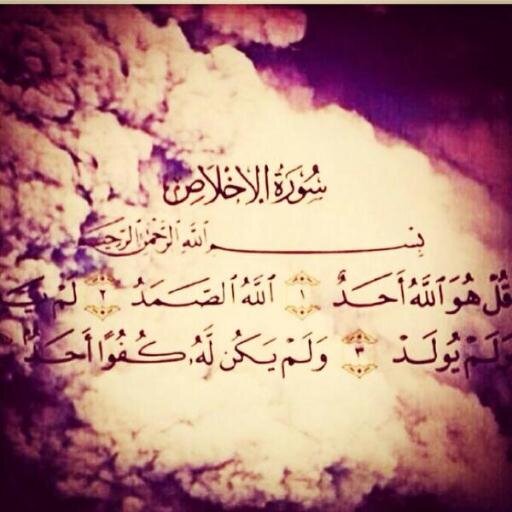 سُورَةُ الإِخْلَاصِ
بِسْمِ اللَّهِ الرَّحْمَٰنِ الرَّحِيمِ
قُلْ هُوَ اللَّهُ أَحَدٌ ١ اللَّهُ الصَّمَدُ ٢ لَمْ يَـ
وَلَمْ يُولَدْ ٣ وَلَمْ يَكُن لَّهُ كُفُوًا أَحَدٌ